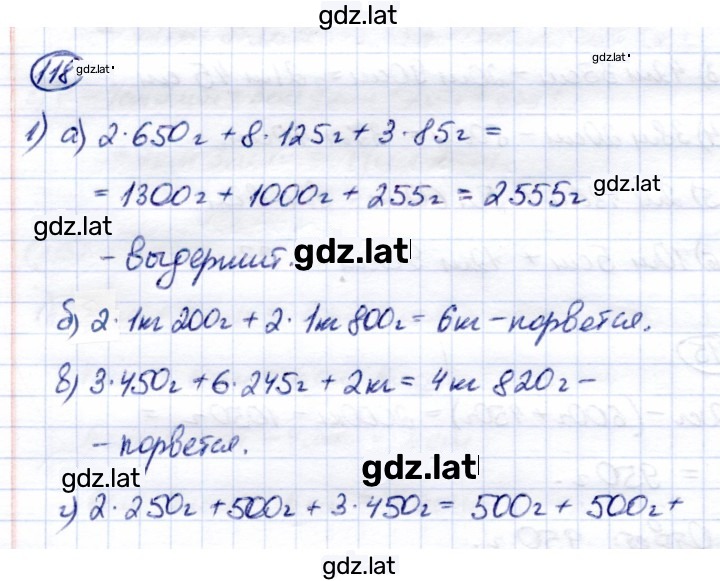 gdz.lat
118 gdz.lat gdz.lat
1) а) 2·650г + 8·125г + 3·85г =
= 1300г + 1000г + 255г = 2555г gdz.lat
gdz.lat
- выдержит. gdz.lat
б) 2·1кг 200г + 2·1кг 800г = 6кг - порвется.
в) 3·450г + 6·245г + 2кг = 4кг 820г -
- порвется. gdz.lat
г) 2·250г + 500г + 3·450г = 500г + 500г +
gdz.lat